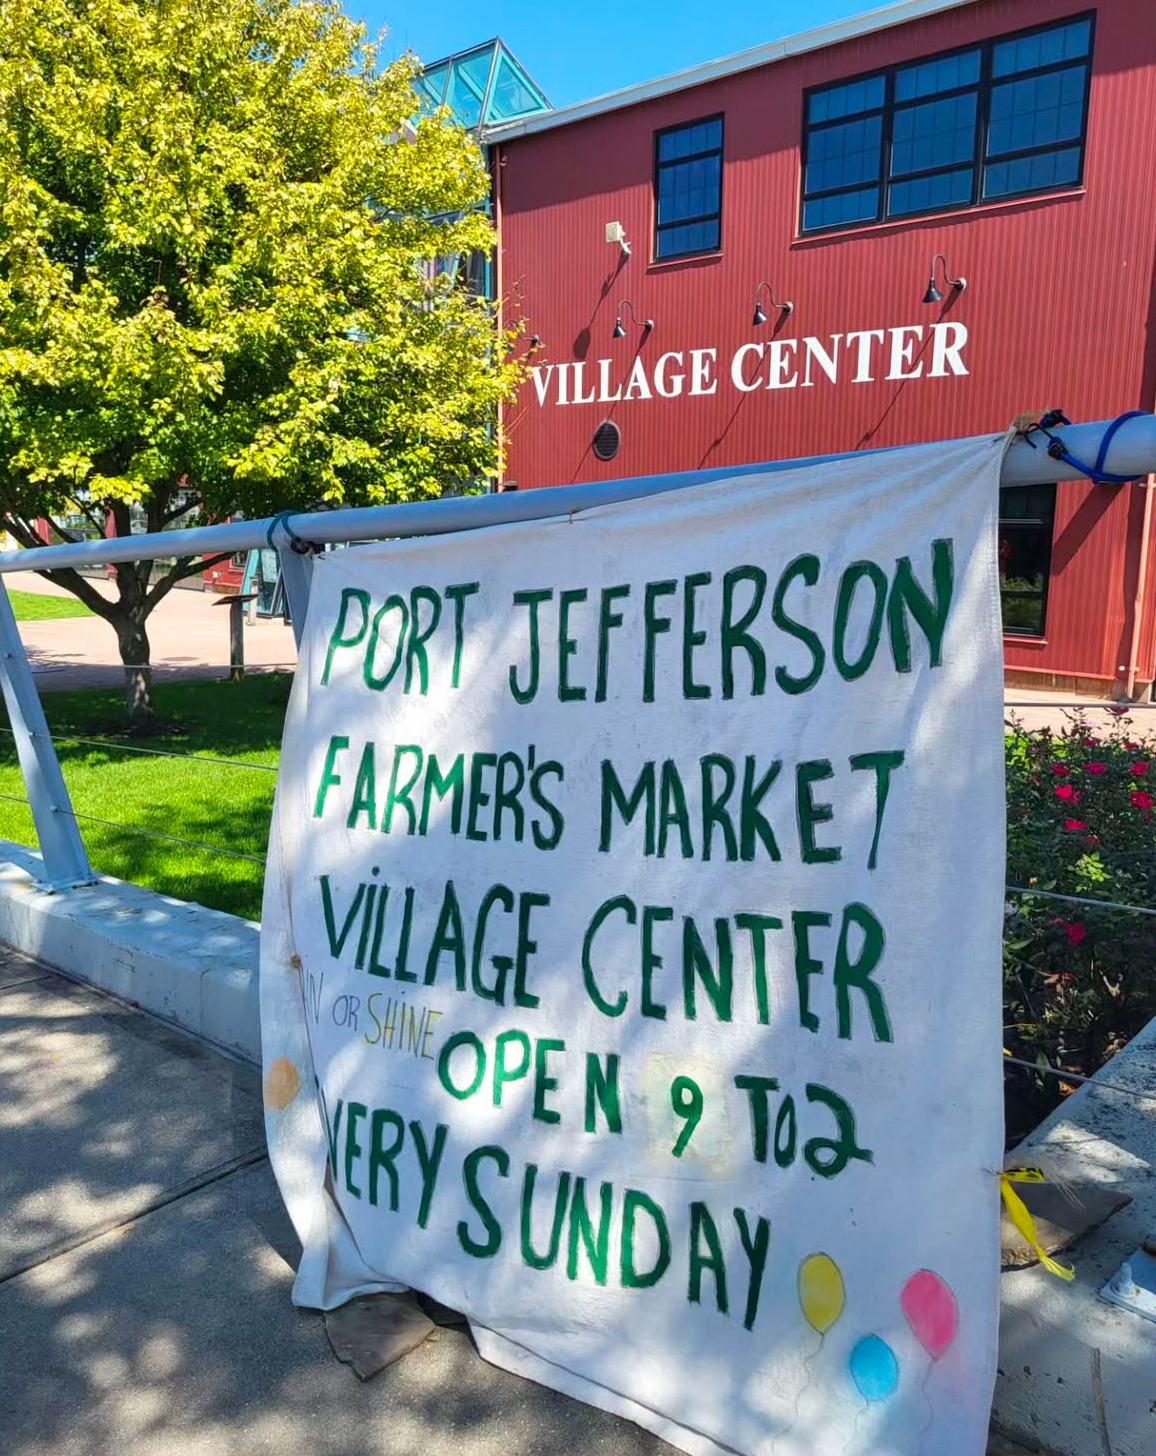 VILLAGE CENTER
PORT JEFFERSON
FARMER'S MARKET
VILLAGE CENTER
OR SHINE
OPEN 9 TO 2
VERY SUNDAY